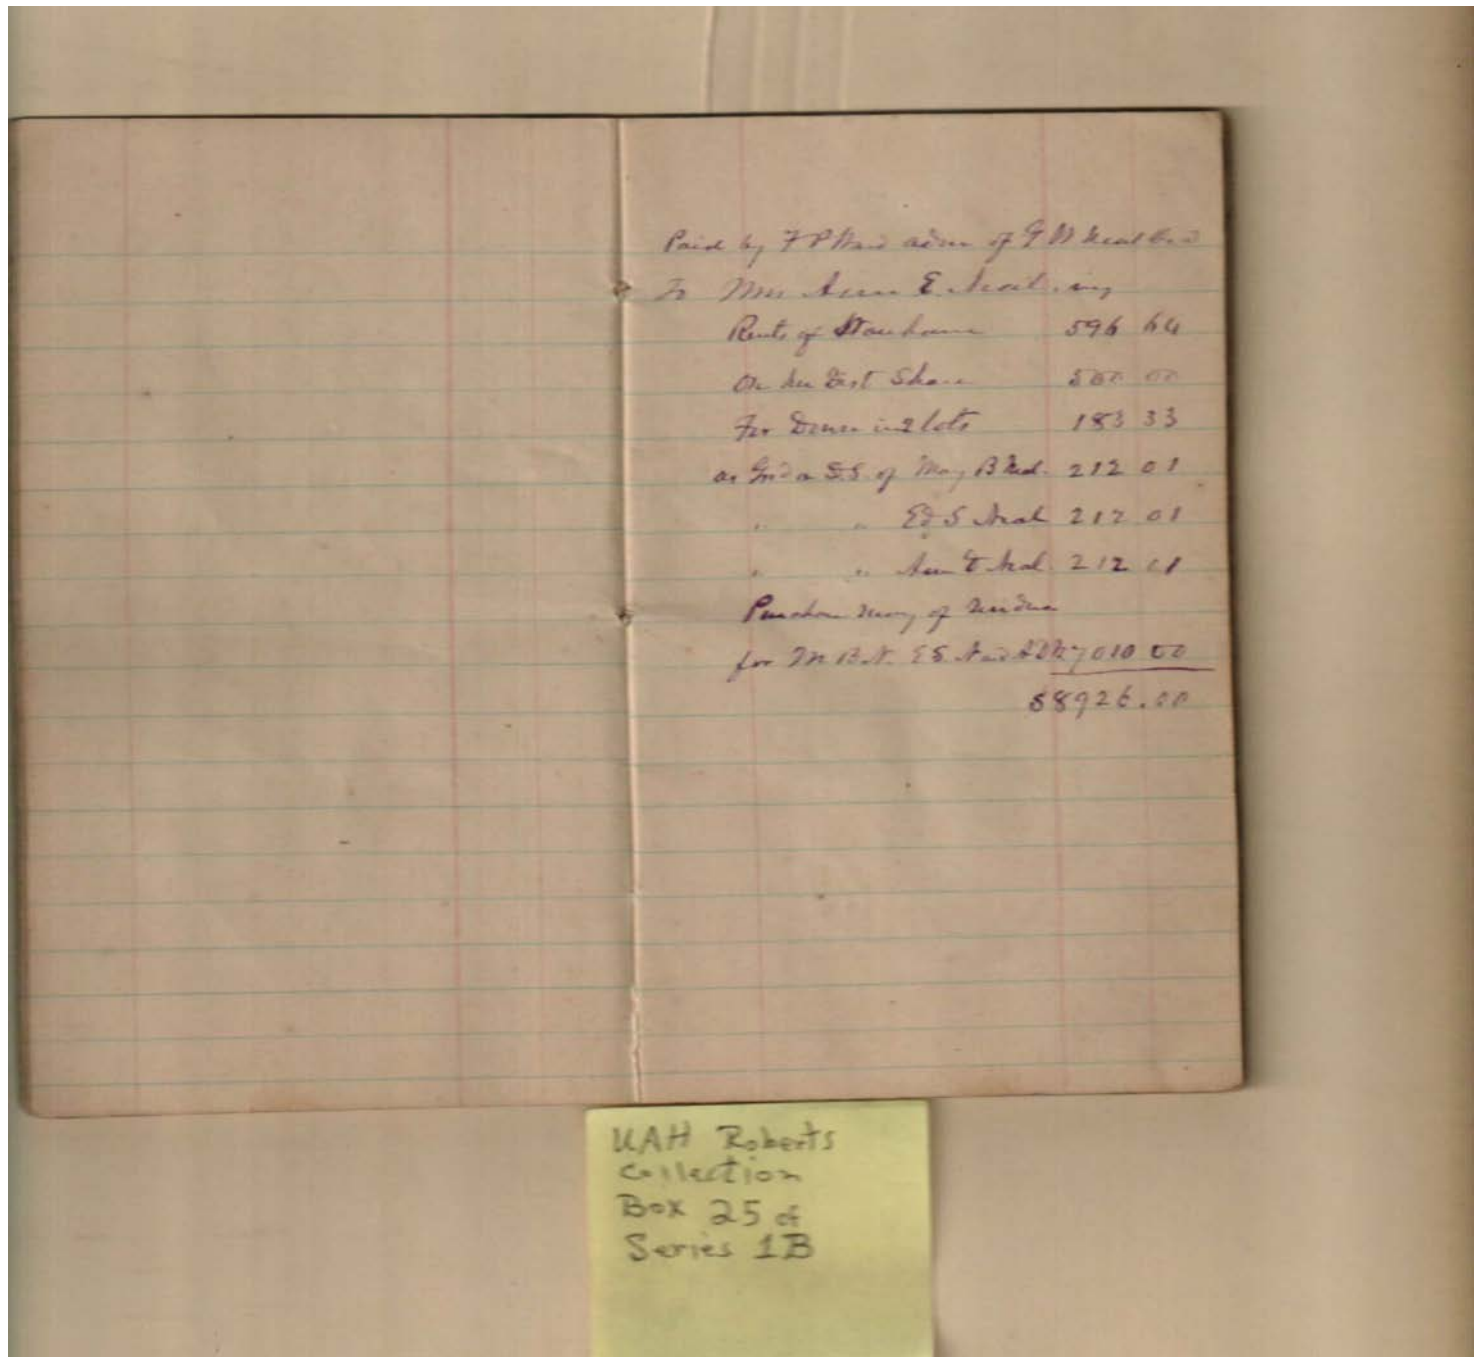 Paid by F P Ward admr of G W Neal decd
To Mrs Ann E. Neal. viz
Rents of Storehouse 596 64
On her Dist Share 500 00
For Dower in 2 lots 183 33
as of May B Neal. 212 01
" " Ed S Neal 212 01
" " Ann E Neal. 212 01
Purchase money of
for M B N. E S. N and A E N 7010 00
$8926.00
UAH Roberts
Collection
Box 25 of
Series 1B